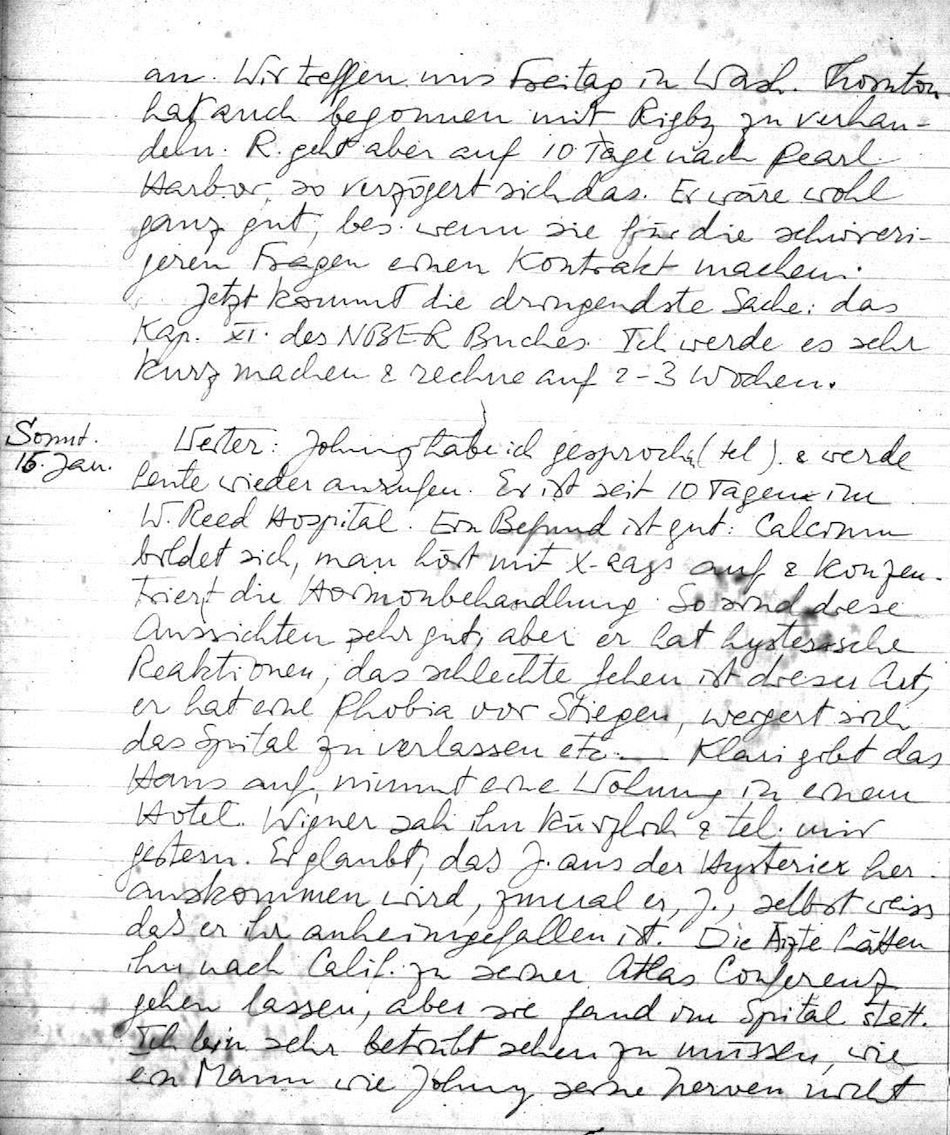 an. Wir treffen uns Freitag in Wash. Thornton
hat auch begonnen mit Rigby zu verhan-
deln. R. geht aber auf 10 Tage nach Pearl
Harbor, so verzögert sich das. Er wäre wohl
ganz gut, bes. wenn sie für die schwieri-
geren Fragen einen Kontrakt machen.
Jetzt kommt die dringendste Sache: das
Kap. XI. des NBER Buches. Ich werde es sehr
kurz machen & rechne auf 2-3 Wochen.
Sonnt.
15. Jan.
Weiter: Johnny habe ich gesproch. (tel). & werde
heute wieder anrufen. Er ist seit 10 Tagen im
W. Reed Hospital. Ein Befund ist gut: Calcium
bildet sich, man hört mit X-rays auf & konzen-
triert die Hormonbehandlung. So sind diese
Aussichten sehr gut, aber er hat hysterische
Reaktionen, das schlechte Sehen ist dieser Art,
er hat eine Phobia vor Stiegen, weigert sich
das Spital zu verlassen etc. — Klari gibt das
Haus auf, nimmt eine Wohnung in einem
Hotel. Wigner sah ihn kürzlich & tel. mir
gestern. Er glaubt, das J. aus der Hysterie her-
auskommen wird, zumal er, J., selbst weiss
das er ihr anheimgefallen ist. Die Ärzte hätten
ihn nach Calif. zu seiner Atlas Conferenz
gehen lassen, aber sie fand im Spital statt.
Ich bin sehr betrübt sehen zu müssen, wie
ein Mann wie Johnny seine Nerven nicht